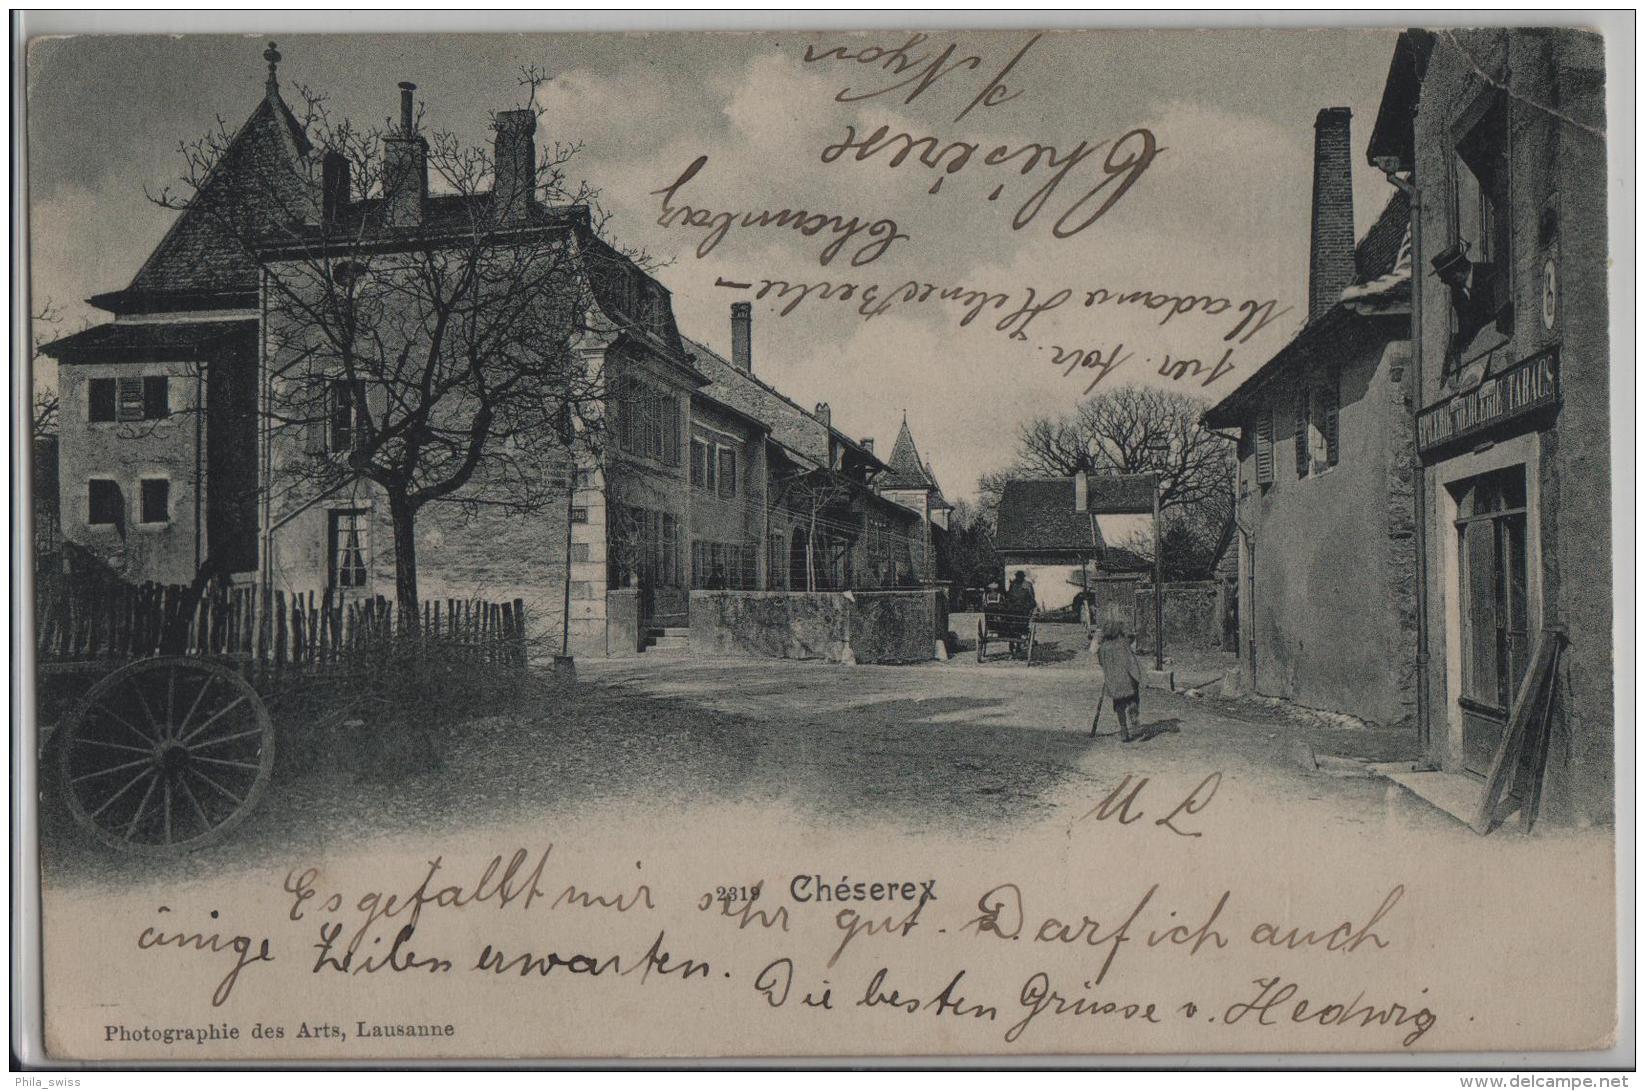 Nyon
Chéserex
Chambaz
Madame Helene Berlie-
per. Adr.
EPICERIE MERCERIE TABACS
M L
2319 Chéserex
Es gefällt mir sehr gut. Darf ich auch
einige Zeilen erwarten.
Die besten Grüsse v. Hedwig.
Photographie des Arts, Lausanne
Phila_swiss
www.delcampe.net